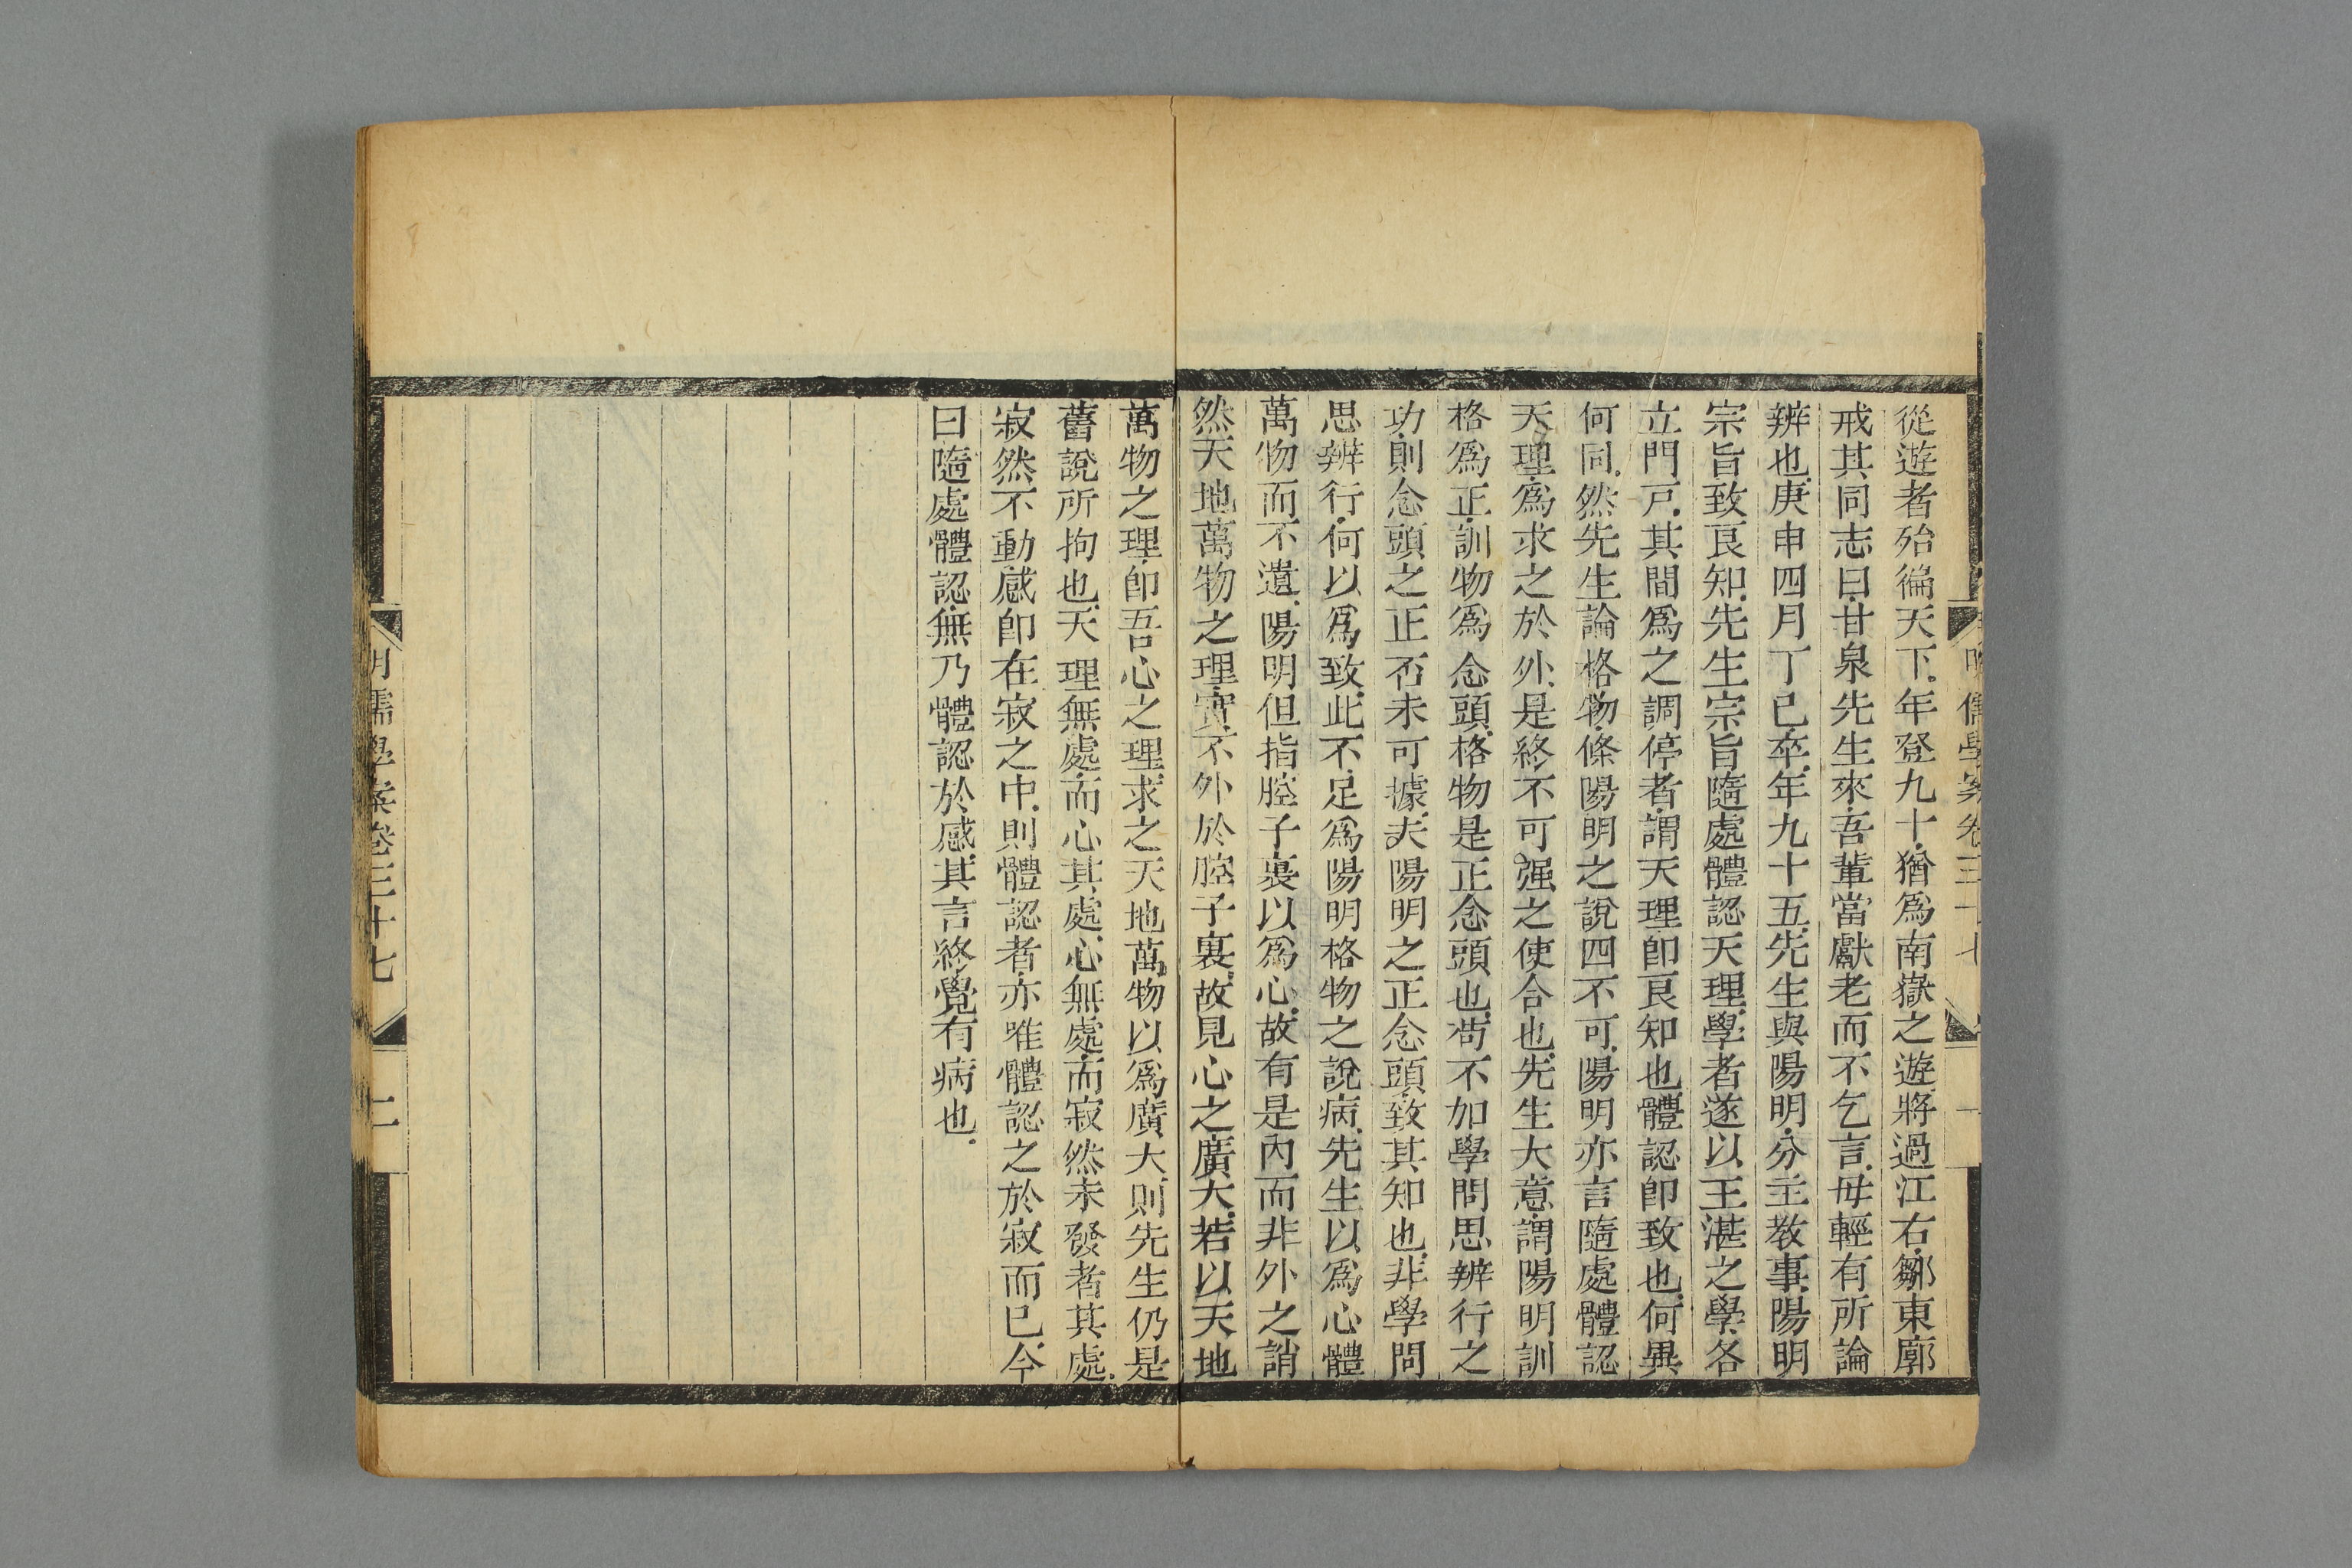 從遊者殆徧天下.年登九十.猶爲南嶽之遊.將過江右.鄒東廓
戒其同志曰.甘泉先生來.吾輩當獻老而不乞言.毋輕有所論
辨也.庚申四月丁巳卒.年九十五.先生與陽明.分主教事.陽明
宗旨致良知.先生宗旨隨處體認天理.學者遂以王湛之學.各
立門戸.其間爲之調停者.謂天理卽良知也.體認卽致也.何異
何同.然先生論格物.條陽明之說四不可.陽明亦言隨處體認
天理.爲求之於外.是終不可强之使合也.先生大意.謂陽明訓
格爲正.訓物爲念頭.格物是正念頭也.苟不加學問思辨行之
功.則念頭之正否未可據.夫陽明之正念頭.致其知也.非學問
思辨行.何以爲致.此不足爲陽明格物之說病.先生以爲心體
萬物而不遺.陽明但指腔子裏以爲心.故有是內而非外之誚
然天地萬物之理.實不外於腔子裏.故見心之廣大.若以天地
萬物之理.卽吾心之理.求之天地萬物以爲廣大.則先生仍是
舊說所拘也.天理無處.而心其處.心無處.而寂然未發者其處.
寂然不動.感卽在寂之中.則體認者.亦唯體認之於寂而已.今
曰隨處體認.無乃體認於感.其言終覺有病也.
明儒學案卷三十七